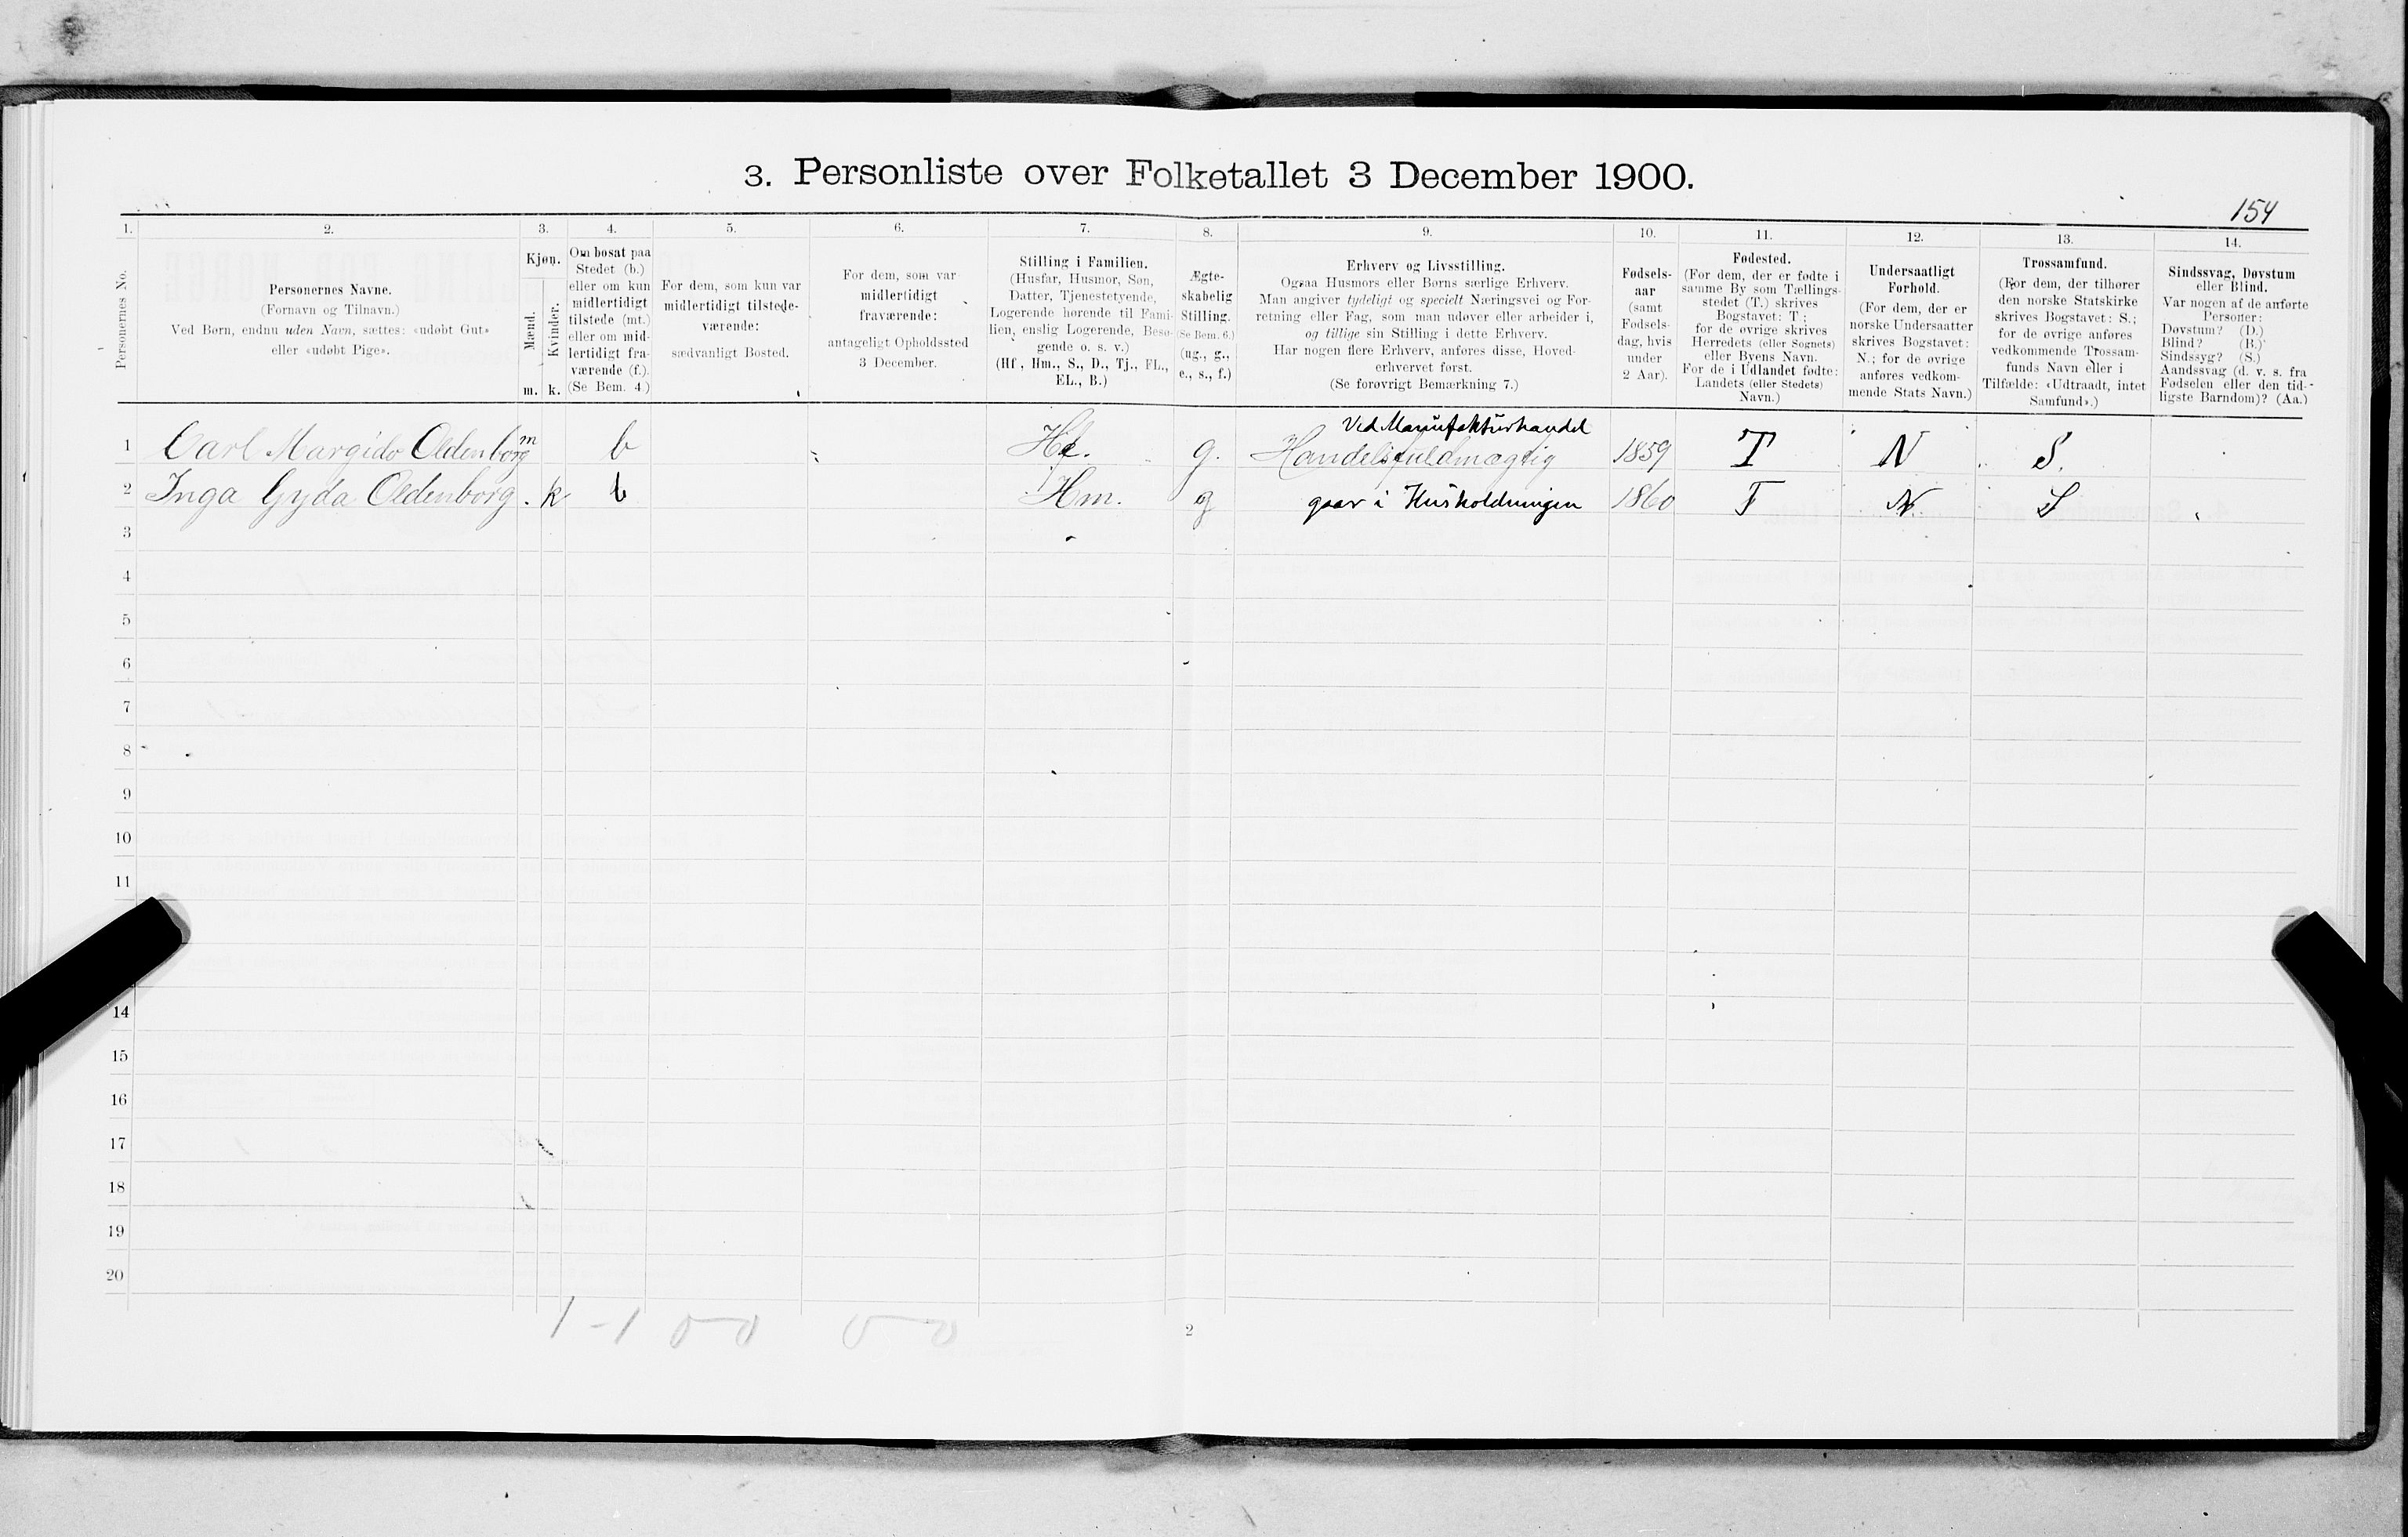 3. Personliste over Folketallet 3 December 1900.
154
1. 2. 3. 4. 5. 6. 7. 8. 9. 10. 11. 12. 13. 14.
Personernes No.
Personernes Navne.
(Fornavn og Tilnavn.)
Ved Børn, endnu uden Navn, sættes: «udøbt Gut»
eller «udøbt Pige».
Kjøn.
Mænd.
Kvinder.
m. k.
Om bosat paa
Stedet (b.)
eller om kun
midlertidigt
tilstede (mt.)
eller om mid-
lertidigt fra-
værende (f.).
(Se Bem. 4.)
For dem, som kun var
midlertidigt tilstede-
værende:
sædvanligt Bosted.
For dem, som var
midlertidigt
fraværende:
antageligt Opholdssted
3 December.
Stilling i Familien.
(Husfar, Husmor, Søn,
Datter, Tjenestetyende,
Logerende hørende til Fami-
lien, enslig Logerende, Besø-
gende o. s. v.)
(Hf., Hm., S., D., Tj., FL.,
EL., B.)
Ægte-
skabelig
Stilling.
(Se Bem. 6.)
(ug., g.,
e., s., f.)
Erhverv og Livsstilling.
Ogsaa Husmors eller Børns særlige Erhverv.
Man angiver tydeligt og specielt Næringsvei og For-
retning eller Fag, som man udøver eller arbeider i,
og tillige sin Stilling i dette Erhverv.
Har nogen flere Erhverv, anføres disse, Hoved-
erhvervet først.
(Se forøvrigt Bemærkning 7.)
Fødsels-
aar
(samt
Fødsels-
dag, hvis
under
2 Aar).
Fødested.
(For dem, der er fødte i
samme By som Tællings-
stedet (T.) skrives
Bogstavet: T;
for de øvrige skrives
Herredets (eller Sognets)
eller Byens Navn.
For de i Udlandet fødte:
Landets (eller Stedets)
Navn.)
Undersaatligt
Forhold.
(For dem, der er
norske Undersaatter
skrives Bogstavet:
N.; for de øvrige
anføres vedkom-
mende Stats Navn.)
Trossamfund.
(For dem, der tilhører
den norske Statskirke
skrives Bogstavet: S.;
for de øvrige anføres
vedkommende Trossam-
funds Navn eller i
Tilfælde: «Udtraadt, intet
Samfund».)
Sindssvag, Døvstum
eller Blind.
Var nogen af de anførte
Personer:
Døvstum? (D.)
Blind? (B.)
Sindssyg? (S.)
Aandssvag (d. v. s. fra
Fødselen eller den tid-
ligste Barndom)? (Aa.)
Ved Manufakturhandel
1 Carl Margido Oldenborg m b Hf. g. Handelsfuldmægtig 1859 T N S.
2 Inga Gyda Oldenborg. k b Hm. g gaar i Husholdningen 1860 T N. S
3
4
5
6
7
8
9
10
11
14
15
16
17
18
19
20
1 - 1 0 0 0 0
2